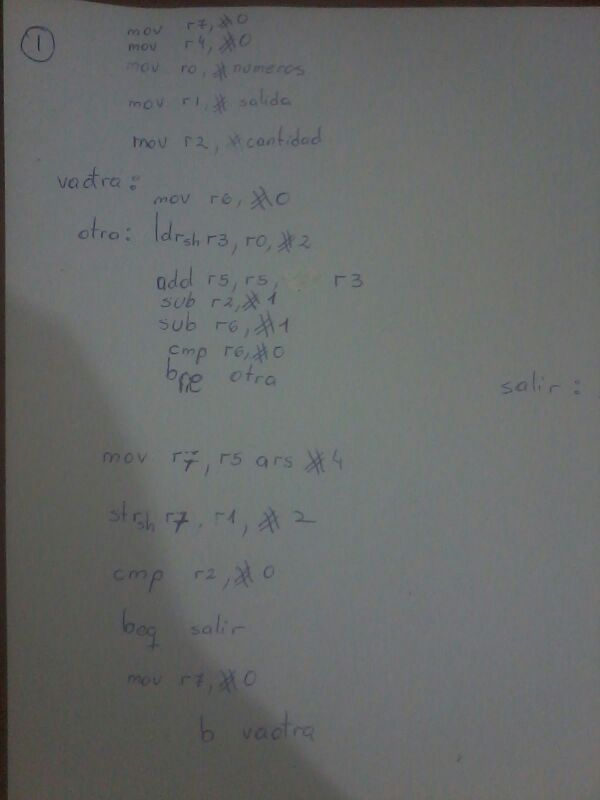 1
mov r7, #0
mov r4, #0
mov r0, #numeros
mov r1, # salida
mov r2, #cantidad
vaotra:
mov r6, #0
otra: ldrsh r3, r0, #2
add r5, r5, r3
sub r2, #1
sub r6, #1
cmp r6, #0
bne otra
salir:
mov r7, r5 ars #4
strsh r7, r1, # 2
cmp r2, #0
beq salir
mov r7, #0
b vaotra